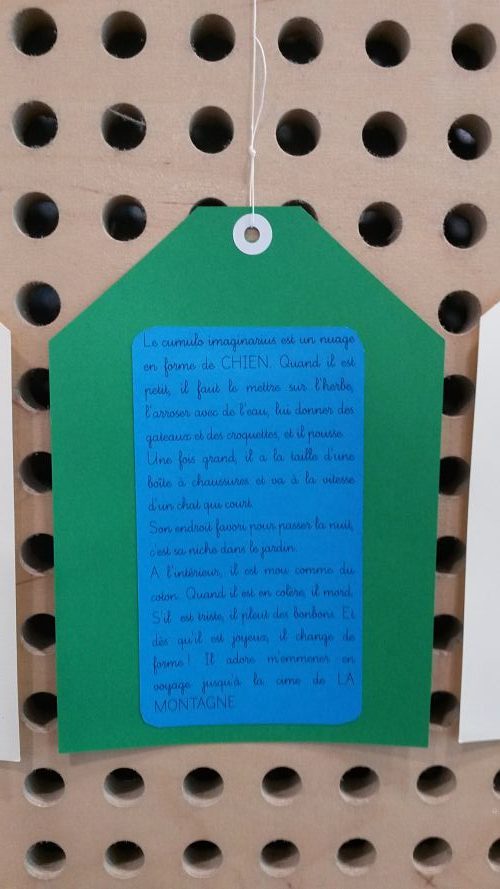 Le cumulo imaginarius est un nuage
en forme de CHIEN. Quand il est
petit, il faut le mettre sur l'herbe,
l'arroser avec de l'eau, lui donner des
gateaux et des croquettes, et il pousse.
Une fois grand, il a la taille d'une
boîte à chaussures et va à la vitesse
d'un chat qui court.
Son endroit favori pour passer la nuit,
c'est sa niche dans le jardin.
A l'intérieur, il est mou comme du
coton. Quand il est en colère, il mord.
S'il est triste, il pleut des bonbons. Et
dès qu'il est joyeux, il change de
forme ! Il adore m'emmener en
voyage jusqu'à la cime de LA
MONTAGNE